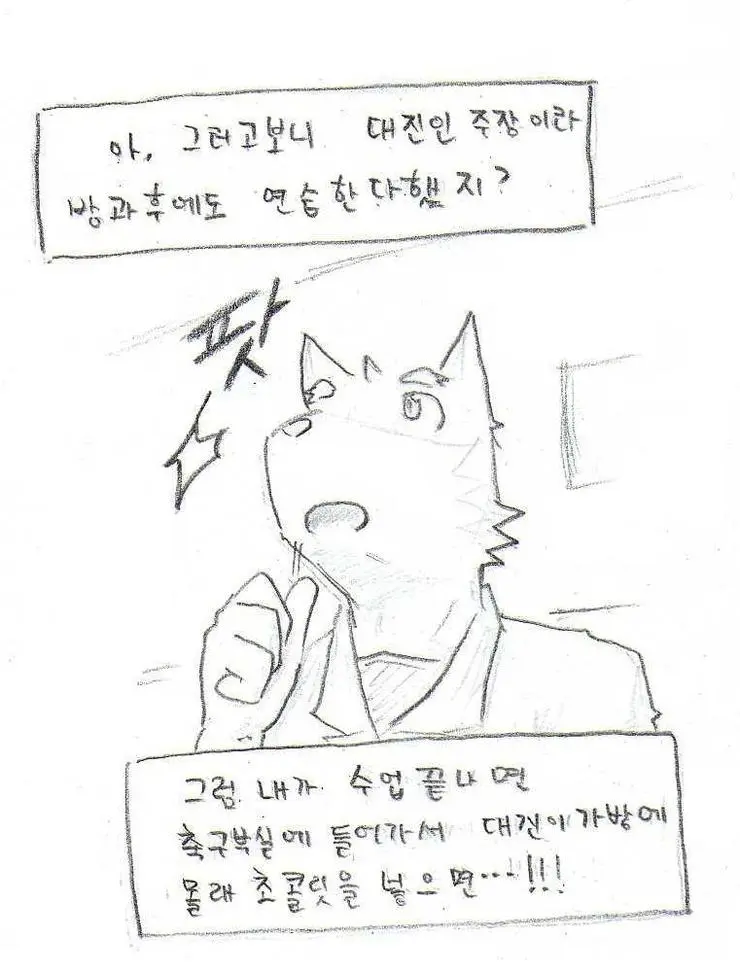 아, 그러고보니 대진인 주장이라
방과후에도 연습한다했지?
팟
그럼 내가 수업끝나면
축구부실에 들어가서 대진이가방에
몰래 초콜릿을 넣으면…!!!